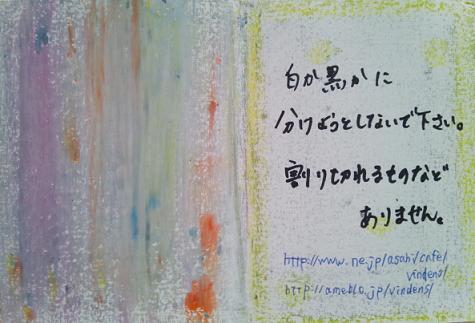 白か黒かに
分けようとしないで下さい。
割り切れるものなど
ありません。
http://www.ne.jp/asahi/cafe/
vindens/
http://ameblo.jp/vindens/